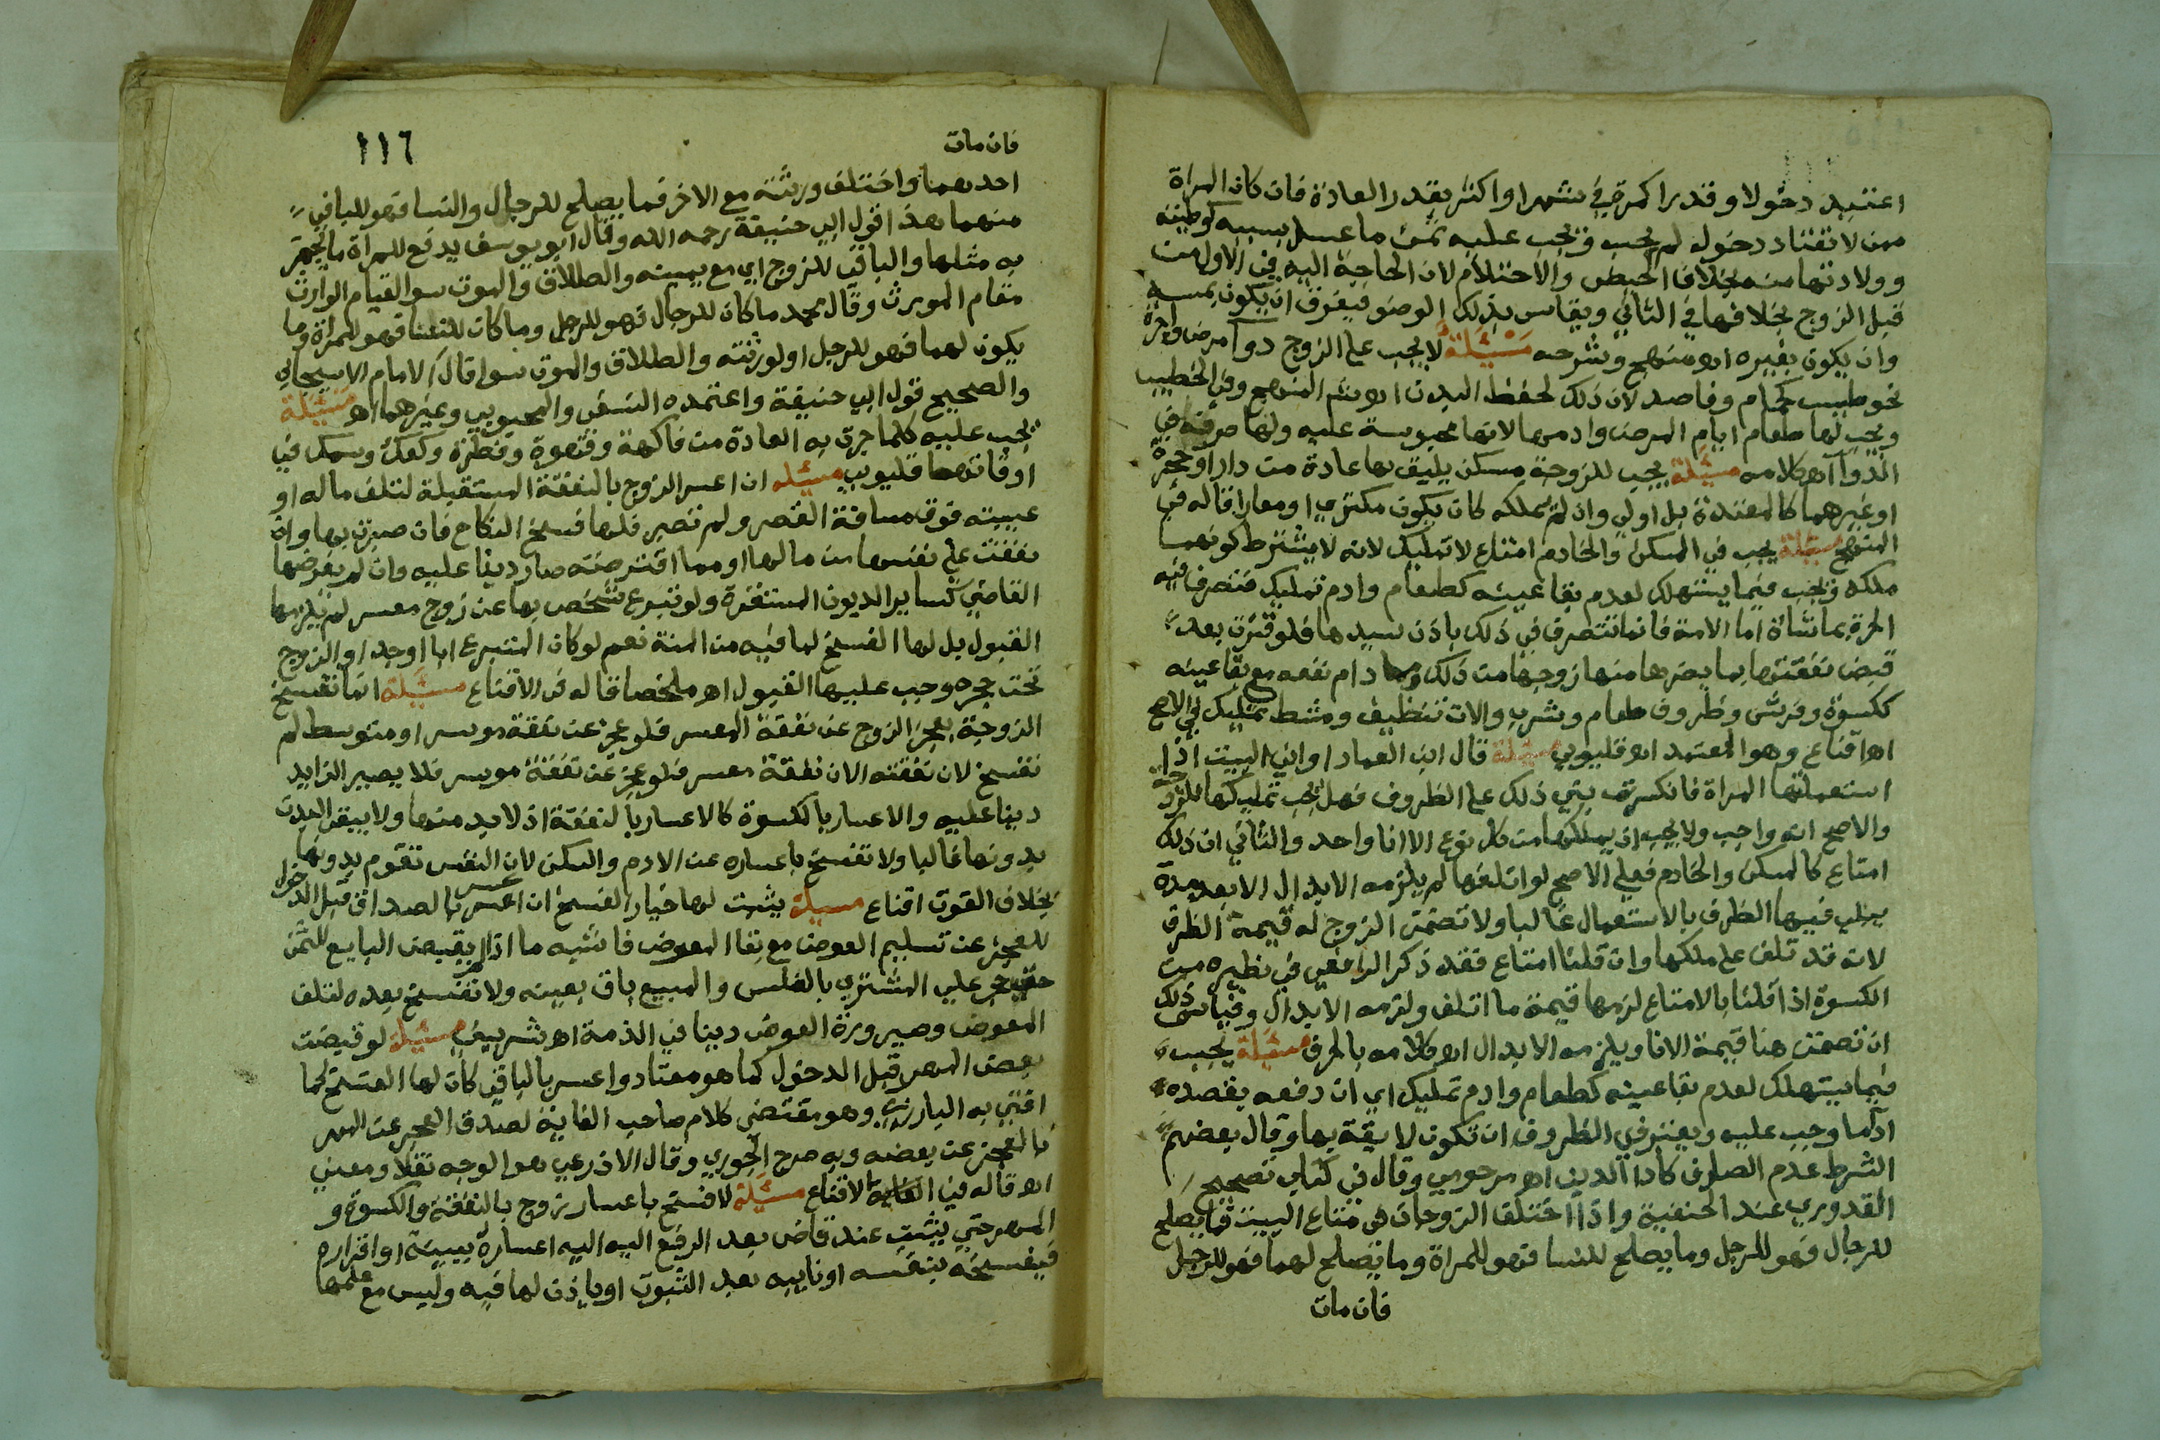 اعتيد دخولا وقدرا كمرة في شهر او اكثر بقدر العادة فان كان المراة
ممن لا تعتاد دخوله لم يجب ويجب عليه ثمن ما غسل بسببه كوطئه
وولادتها منه بخلاف الحيض والاحتلام لان الحاجة اليه في الاول من
قبل الزوج بخلافها في الثاني ويقاس بذلك الوضو فيفرق ان يكون بمسه
وان يكون بغيره اه منهج وشرحه مسئلة لا يجب على الزوج دوا مرض واجرة
نحو طبيب كحجام وفاصد لان ذلك لحفظ البدن اه شرح المنهج وفي الخطيب
ويجب لها طعام ايام المرض وادمها لانها محبوسة عليه ولها صرفه في
الدوا اه كلامه مسئلة يجب للزوجة مسكن يليق بها عادة من دار او حجرة
او غيرهما كالمعتدة بل اولى وان لم يملكه كان يكون مكتري او معارا قاله في
المنهج مسئلة يجب في المسكن والخادم امتاع لا تمليك لانه لا يشترط كونهما
ملكه ويجب فيما يستهلك لعدم بقا عينه كطعام وادم تمليك فتتصرف فيه
الحرة بما شاة اما الامة فانما تتصرف في ذلك باذن سيدها فلو قترت بعد
قبض نفقتها بما يضرها منعها زوجها من ذلك وما دام نفعه مع بقا عينه
ككسوة وفرش وظروف طعام وشرب والات تنظيف ومشط تمليك في الاصح
اه اقناع وهو المعتمد اه قليوبي مسئلة قال ابن العماد اواني البيت اذا
استعملتها المراة فانكسرت يبتني ذلك على الظروف فهل يجب تمليكها للزوجة
والاصح انه واجب ولا يجب ان يملكها من كل نوع الا انا واحد والثاني ان ذلك
امتاع كالمسكن والخادم فعلى الاصح لو اتلفها لم يلزمه الابدال الا بعد مدة
يبلى فيها الظرف بالاستعمال غالبا ولا تضمن الزوج له قيمة الظرف
لانه قد تلف على ملكها وان قلنا امتاع فقد ذكر الرافعي في نظيره من
الكسوة اذا قلنا بالامتاع لزمها قيمة ما اتلف ولزمه الابدال وقياس ذلك
ان تضمن هنا قيمة الانا ويلزمه الابدال اه كلامه بالحرف مسئلة يجب
فيما يستهلك لعدم بقا عينه كطعام وادم تمليك اي ان دفعه بقصده
ادا ما وجب عليه ويعتبر في الظروف ان تكون لايقة بها وقال بعضهم
الشرط عدم الصارف كادا الدين اه مرحومي وقال في كتابي تصحيح
القدوري عند الحنفية واذا اختلف الزوجان في متاع البيت فما يصلح
للرجال فهو للرجل وما يصلح للنسا فهو للمراة وما يصلح لهما فهو للرجل
فان مات
١١٦
فان مات
احدهما واختلف ورثته مع الاخر فما يصلح للرجال والنسا فهو للباقي
منهما هذا قول ابي حنيفة رحمه الله وقال ابو يوسف يدفع للمراة ما يجهز
به مثلها والباقي للزوج اي مع يمينه والطلاق والموت سوا لقيام الوارث
مقام المورث وقال محمد ما كان للرجال فهو للرجل وما كان للنسا فهو للمراة وما
يكون لهما فهو للرجل او لورثته والطلاق والموت سوا قال الامام الاسبيجابي
والصحيح قول ابي حنيفة واعتمده النسفي والمحبوبي وغيرهما اه مسئلة
يجب عليه كلما جرت به العادة من فاكهة وقهوة وفطرة وكعك وسمك في
اوقاتها قليوبي مسئله ان اعسر الزوج بالنفقة المستقبلة لتلف ماله او
غيبته فوق مسافة القصر ولم تصبر فلها فسخ النكاح فان صبرت بها وان
نفقت على نفسها من مالها او مما اقترضته صار دينا عليه وان لم يفرضها
القاضي كساير الديون المستقرة ولو تبرع شخص بها عن زوج معسر لم يلزمها
القبول بل لها الفسخ لما فيه من المنة نعم لو كان المتبرع ابا او جدا والزوج
تحت حجره وجب عليها القبول اه ملخصا قاله في الاقناع مسئلة انما تفسخ
الزوجة بعجز الزوج عن نفقة المعسر فلو عجز عن نفقة موسر او متوسط لم
تفسخ لان نفقته الان نفقة معسر فلو عجز عن نفقة موسر فلا يصير الزايد
دينا عليه والاعسار بالكسوة كالاعسار بالنفقة اذ لا بد منها ولا يبقى البدن
بدونها غالبا ولا تفسخ باعساره عن الادم والمسكن لان النفس تقوم بدونها
بخلاف القوت اقناع مسئلة يثبت لها خيار الفسخ ان اعسر بالصداق قبل الدخول
للعجز عن تسليم العوض مع بقا المعوض فاشبه ما اذا لم يقبض البايع الثمن
حتى حجر على المشتري بالفلس والمبيع باق بعينه ولا تفسخ بعده لتلف
المعوض وصيرورة العوض دينا في الذمة اه شربيني مسئلة لو قبضت
بعض المهر قبل الدخول كما هو معتاد واعسر بالباقي كان لها الفسخ كما
افتي به البارزي وهو مقتضى كلام صاحب الغاية لصدق العجز عن المهر
بالعجز عن بعضه وبه صرح الجوري وقال الاذرعي هو الوجه نقلا ومعنى
اه قاله في الاقناع مسئلة لا فسخ باعسار زوج بالنفقة والكسوة و
المهر حتى يثبت عند قاض بعد الرفع اليه اليه اعساره ببينة او اقراره
فيفسخه بنفسه او نايبه بعد الثبوت او ياذن لها فيه وليس مع علمها